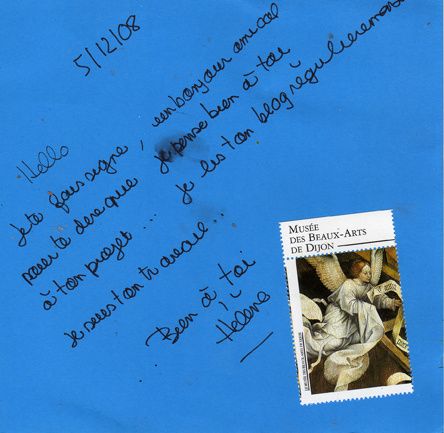 5/12/08
Hello
Je te fais signe, un bonjour amical
pour te dire que je pense bien à toi
à ton projet... je lis ton blog régulièrement
je suis ton travail...
Bien à toi
Hélène
MUSÉE
DES BEAUX-ARTS
DE DIJON